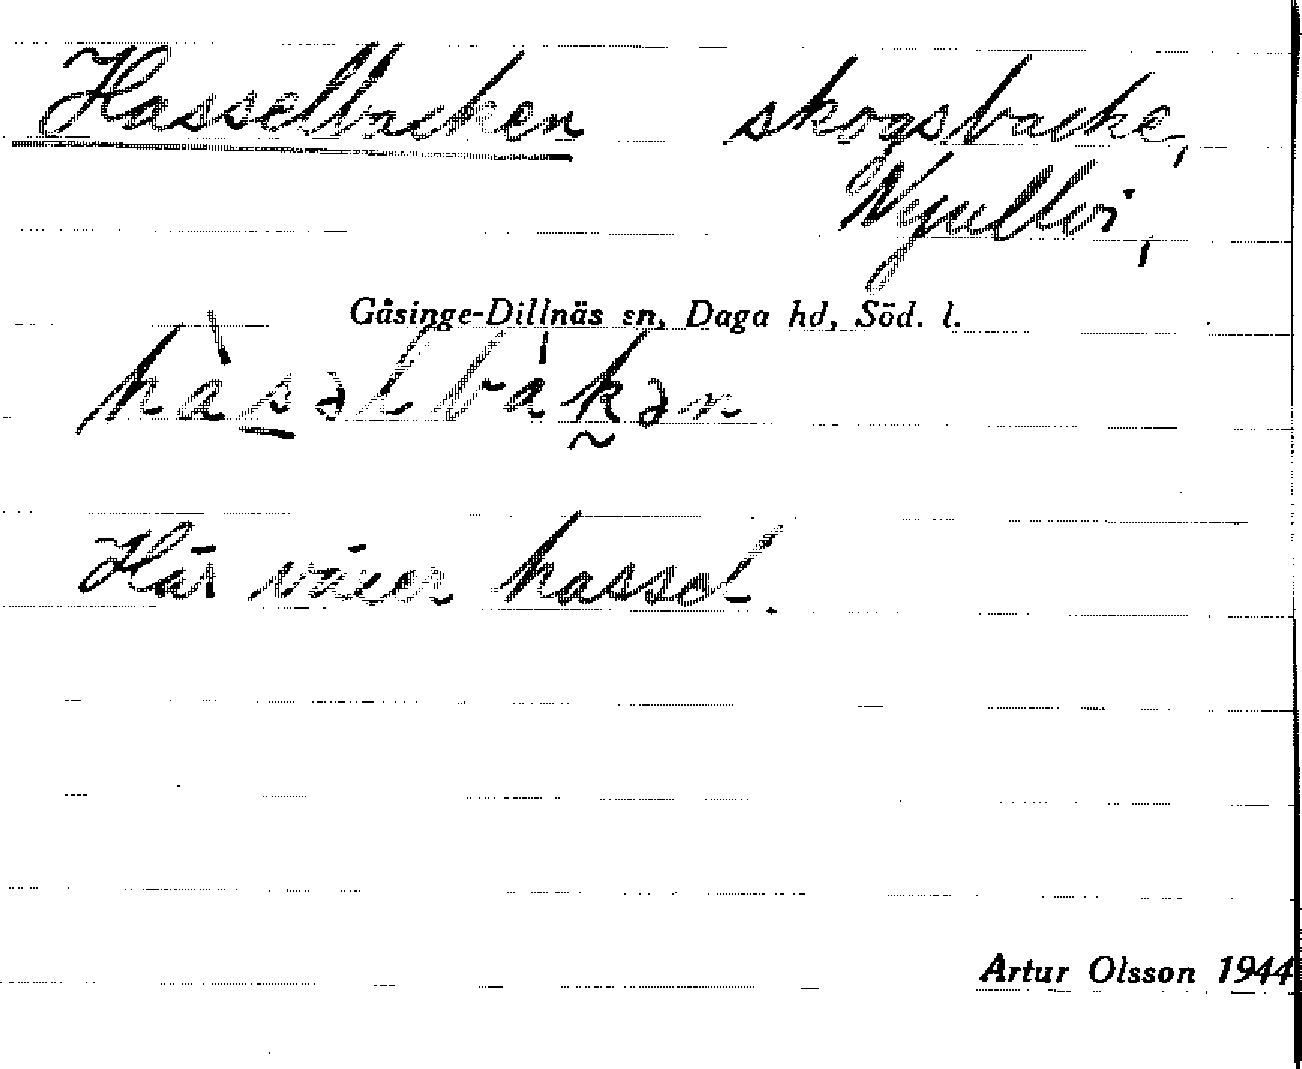 Hasselbacken skogsbacke,
Nygullvi,
Gåsinge-Dillnäs sn, Daga hd, Söd. l.
hàsəlbákən
Här växer hassel.
Artur Olsson 1944